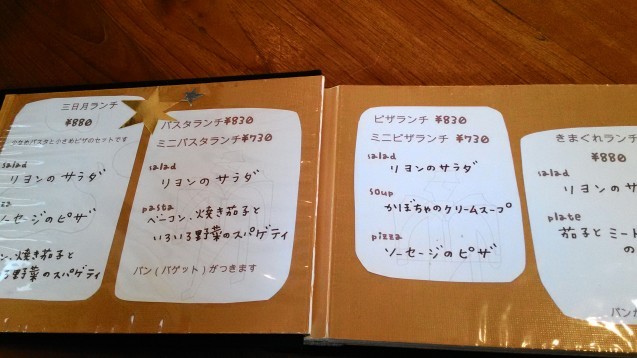 三日月ランチ
¥880
小さめパスタと小さめピザのセットです
salad
リヨンのサラダ
ソーセージのピザ
焼き茄子と
野菜のスパゲティ
パスタランチ ¥830
ミニパスタランチ¥730
salad
リヨンのサラダ
pasta
ベーコン、焼き茄子と
いろいろ野菜のスパゲティ
パン(バゲット)がつきます
ピザランチ ¥830
ミニピザランチ ¥730
salad
リヨンのサラダ
soup
かぼちゃのクリームスープ
pizza
ソーセージのピザ
きまぐれランチ
¥880
salad
リヨンのサ
plate
茄子とミート
の
パンが